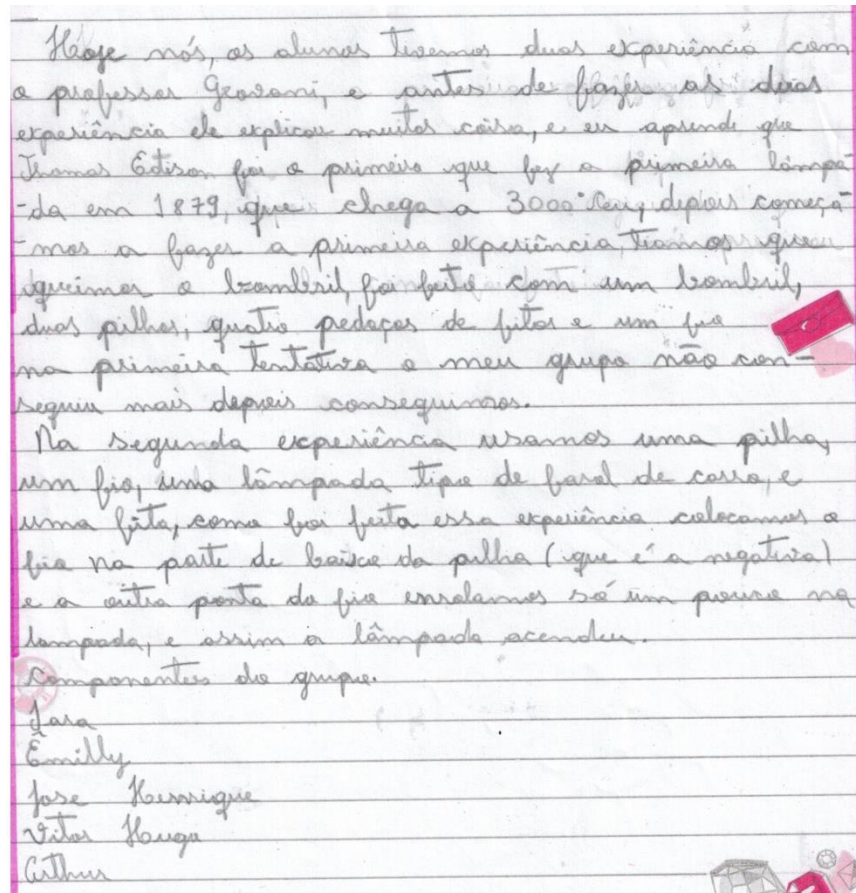 Hoje nós, os alunos tivemos duas experiência com
o professor Geovani, e antes de fazer as duas
experiência ele explicou muitas coisa, e eu aprendi que
Thomas Edison foi o primeiro que fez a primeira lâmpa-
-da em 1879, que chega a 3000° depois começa-
-mos a fazer a primeira experiência, tiamos que
queimar o bombril, foi feito com um bombril,
duas pilhas, quatro pedaços de fitas e um fio
na primeira tentativa o meu grupo não con-
seguiu mais depois conseguimos.
Na segunda experiência usamos uma pilha,
um fio, uma lâmpada tipo de farol de carro, e
uma fita, como foi feita essa experiência colocamos o
fio na parte de baixo da pilha (que é a negativa)
e a outra ponta do fio enrolamos só um pouco na
lampada, e assim a lâmpada acendeu.
Componentes do grupo.
Iara
Êmilly
Jose Henrique
Vitor Hugo
Arthur